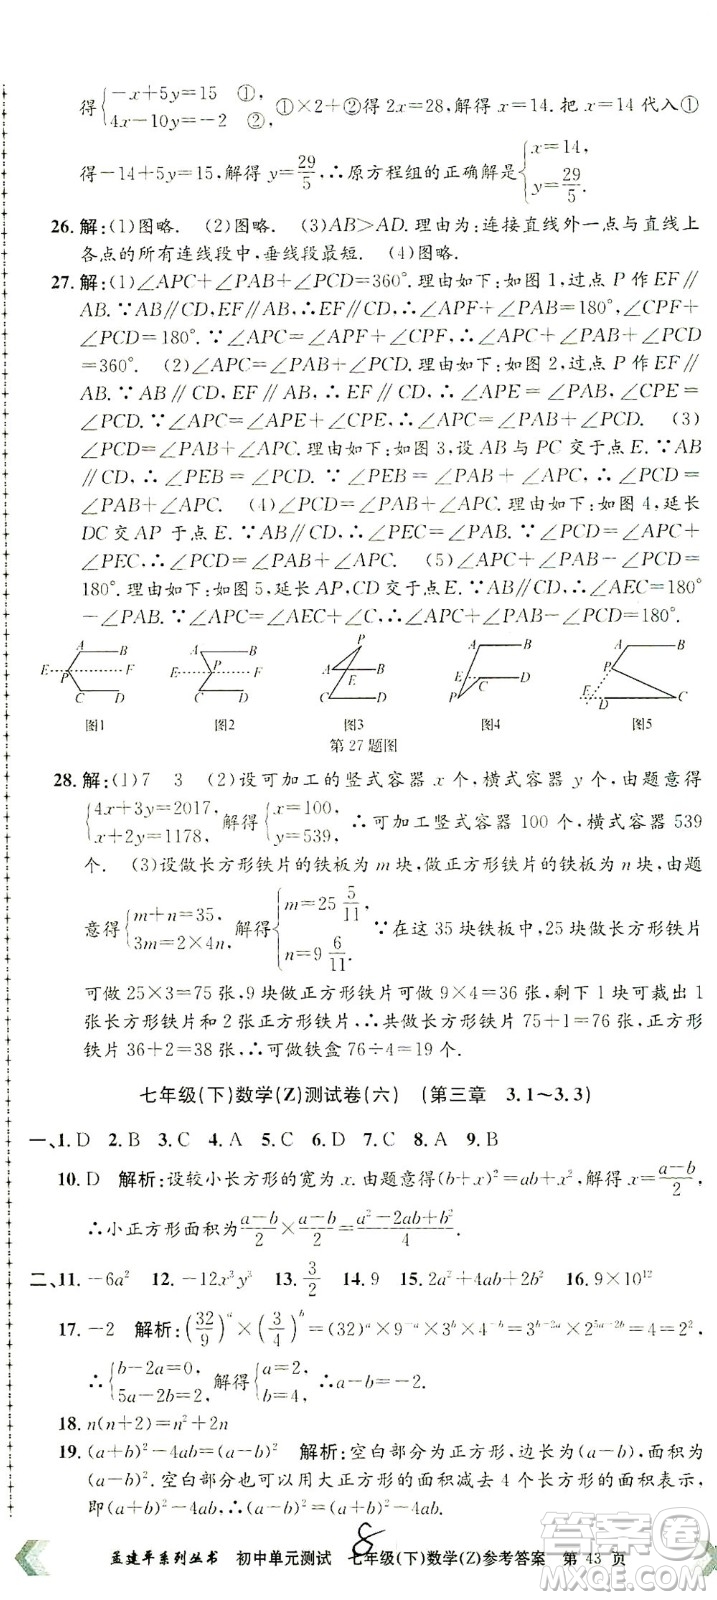 得{−x+5y=15 ① 4x−10y=−2 ② ①×2+②得 2x=28,解得 x=14.把 x=14 代入①
得−14+5y=15,解得 y=29/5,∴原方程组的正确解是{x=14, y=29/5.
26.解:(1)图略. (2)图略. (3)AB>AD.理由如下:连接直线外一点与直线上
各点的所有连线段中,垂线段最短. (4)图略.
27.解:(1)∠APC+∠PAB+∠PCD=360°.理由如下:如图 1,过点 P 作 EF∥
AB.∵AB∥CD,EF∥AB,∴EF∥CD,∴∠APF+∠PAB=180°,∠CPF+
∠PCD=180°.∵∠APC=∠APF+∠CPF,∴∠APC+∠PAB+∠PCD
=360°. (2)∠APC=∠PAB+∠PCD.理由如下:如图 2,过点 P 作 EF∥
AB.∵AB∥CD,EF∥AB,∴EF∥CD,∴∠APE=∠PAB,∠CPE=
∠PCD.∵∠APC=∠APE+∠CPE,∴∠APC=∠PAB+∠PCD. (3)
∠PCD=∠PAB+∠APC.理由如下:如图 3,设 AB 与 PC 交于点 E.∵AB∥
CD,∴∠PEB=∠PCD.∵∠PEB=∠PAB+∠APC,∴∠PCD=∠APC
+∠PAB. (4)∠PAB=∠APC+∠PCD.理由如下:如图 4,延长
DC 交 AP 于点 E.∵AB∥CD,∴∠PAB=∠PED.∵∠PCD=∠APC+
∠PEC,∴∠PCD=∠APC+∠PAB. (5)∠APC+∠PAB+∠PCD=
180°.理由如下:如图 5,延长 AP,CD 交于点 E.∵AB∥CD,∴∠AEC=
180°−∠PAB.∵∠APC=∠AEC+∠C,∴∠APC=∠PCD+180°
−∠PAB,∴∠APC+∠PAB−∠PCD=180°.
A B E P F C D
A B E P F C D
P A E B C D
A B E C D P
A B P E D C
图1 图2 图3 图4 图5
第 27 题图
28.解:(1)7 3 (2)设可加工的竖式容器 x 个,横式容器 y 个,由题意得
{4x+3y=2017, x+2y=1178, 解得{x=100, y=539, ∴可加工竖式容器 100 个,横式容器 539
个. (3)设做长方形铁片的铁板为 m 块,做正方形铁片的铁板为 n 块,由题
意得{m+n=35, 3m=2×4n, 解得{m=25 5/11, n=9 6/11. ∵在这 35 块铁板中,25 块做长方形铁片
可做 25×3=75 张,9 块做正方形铁片可做 9×4=36 张,剩下 1 块可裁出 1
张长方形铁片和 2 张正方形铁片,∴共做长方形铁片 75+1=76 张,正方形
铁片 36+2=38 张,∴可做铁盒 76÷4=19 个.
七年级(下)数学(Z)测试卷(六) (第三章 3.1~3.3)
一、1.D 2.B 3.C 4.A 5.C 6.D 7.A 8.A 9.B
10.D 解析:设较小长方形的宽为 x.由题意得(b+x)²=ab+x²,解得 x=(a−b)/2,
∴小正方形面积为(a−b)/2×(a−b)/2=(a²−2ab+b²)/4.
二、11.−6a² 12.−12x³y³ 13.3/2 14.9 15.2a²+4ab+2b² 16.9×10¹²
17.−2 解析:(32/9)ᵃ×(3/4)ᵇ=(32)ᵃ×9⁻ᵃ×3ᵇ×4⁻ᵇ=3ᵇ⁻²ᵃ×2⁵ᵃ⁻²ᵇ=4=2²,
∴{b−2a=0, 5a−2b=2, 解得{a=2, b=4. ∴a−b=−2.
18.n(n+2)=n²+2n
19.(a+b)²−4ab=(a−b)² 解析:空白部分为正方形,边长为(a−b),面积为
(a−b)².空白部分也可以用大正方形的面积减去 4 个长方形的面积表示,
即(a+b)²−4ab,∴(a+b)²−4ab=(a−b)².
8
孟建平系列丛书 初中单元测试 七年级(下)数学(Z)参考答案 第 43 页